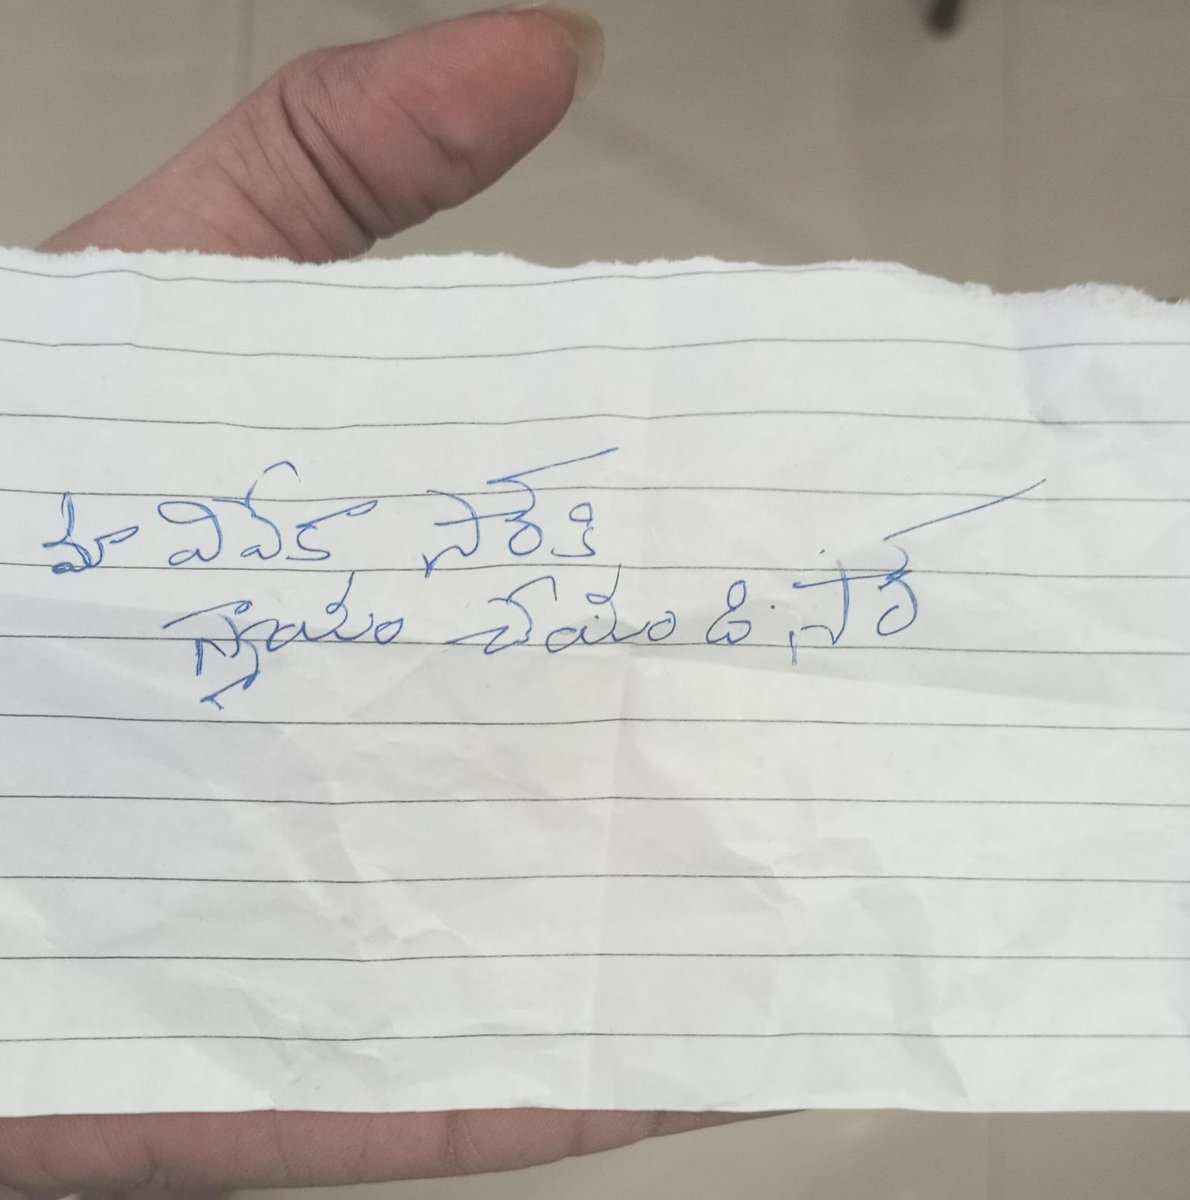 మా వివేకా సార్ కి
న్యాయం చేయండి. సార్